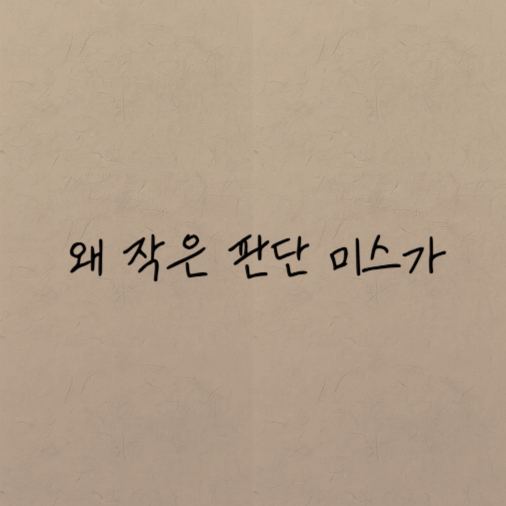 왜 작은 판단 미스가